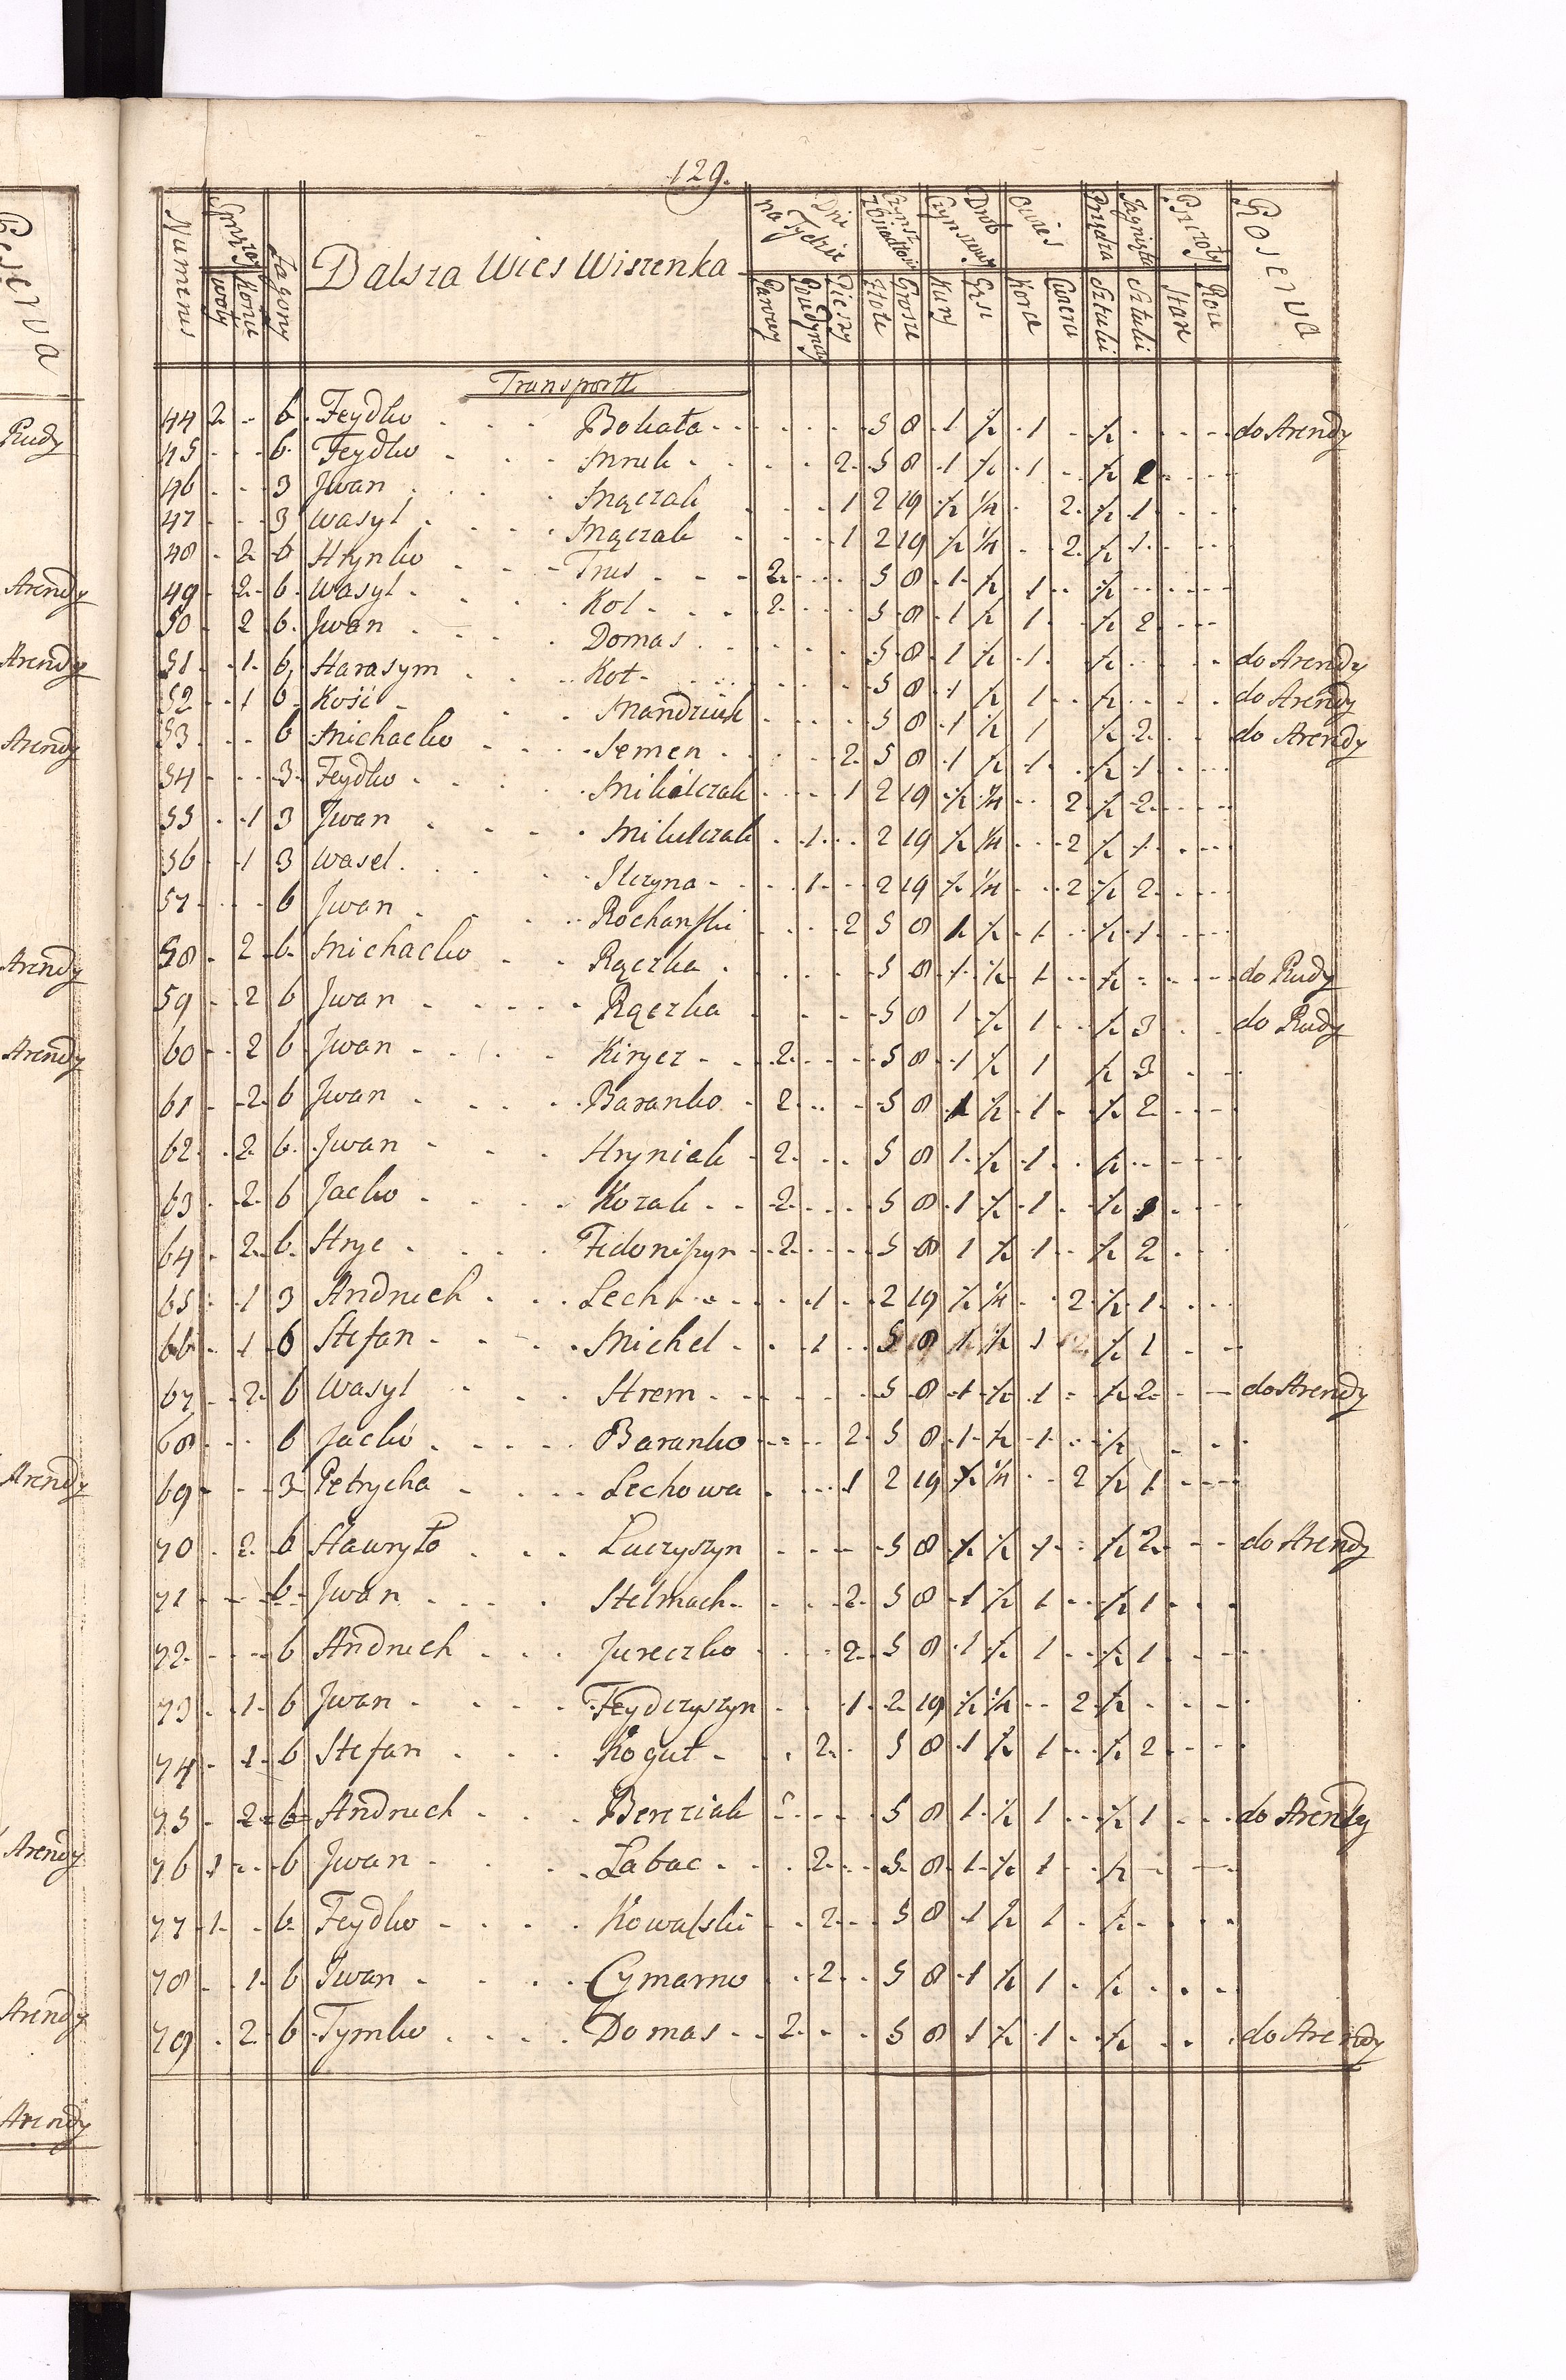 129.
Numerus Sprzęzay Zagony Dalsza Wies Wiszenka Dni na Tydzień Czynsz Drob Czynszowy Owies Przędza Jagnięta Pszczoły Roserva
woły Konie Parowy Poiedynczy Pieszy Złote Grosze Kury Gęsi Korce Sztuki Sztuki Stare Roie
Transportt
44 2 - 6 Feydko Bokata 5 8 1 ½ 1 ½ do Arendy
45 6 Feydko Mruk 2 5 8 1 ½ 1 ½ 2
46 3 Jwan Mączak 1 2 19 ½ ¼ 2 ½ 1
47 3 Wasyl Mączak 1 2 19 ½ ¼ 2 ½ 1
48 2 6 Hrynko Trus 2 5 8 1 ½ 1 ½
49 2 6 Wasyl Kot 2 5 8 1 ½ 1 ½ 2
50 2 6 Jwan Domas 5 8 1 ½ 1 ½ do Arendy
51 1 6 Harasym Kot 5 8 1 ½ 1 ½ do Arendy
52 1 6 Kość Mandziuk 5 8 1 ½ 1 ½ 2 do Arendy
53 6 Michałko Semen 2 5 8 1 ½ 1 ½ 1
54 3 Feydko Mikulczak 1 2 19 ½ ¼ 2 ½ 2
55 1 3 Jwan Mikulczak 1 2 19 ½ ¼ 2 ½ 1
56 1 3 Wasel Ilczyna 1 2 19 ½ ¼ 2 ½ 2
57 6 Jwan Rochanski 2 5 8 1 ½ 1 ½ 1
58 2 6 Michałko Rączka 5 8 1 ½ 1 ½ do Rudy
59 2 6 Jwan Rączka 5 8 1 ½ 1 ½ 3 do Rudy
60 2 6 Jwan Kinyez 2 5 8 1 ½ 1 ½ 3
61 2 6 Jwan Baranko 2 5 8 1 ½ 1 ½ 2
62 2 6 Jwan Hryniak 2 5 8 1 ½ 1 ½
63 2 6 Jacko Kozak 2 5 8 1 ½ 1 ½
64 2 6 Stryc Fedoniszyn 2 5 8 1 ½ 1 ½ 2
65 1 3 Andruch Lech 1 2 19 ½ ¼ 2 ½ 1
66 1 6 Stefan Michel 1 5 8 1 ½ 1 ½ 1
67 2 6 Wasyl Strem 5 8 1 ½ 1 ½ 2 do Arendy
68 6 Jacko Baranko 2 5 8 1 ½ 1 ½
69 3 Petrycha Lechowa 1 2 19 ½ ¼ 2 ½ 1
70 2 6 Hawryło Luczyszyn 5 8 1 ½ 1 ½ 2 do Arendy
71 6 Jwan Stelmach 2 5 8 1 ½ 1 ½ 1
72 6 Andruch Jureczko 2 5 8 1 ½ 1 ½ 1
73 1 6 Jwan Feydczyszyn 1 2 19 ½ ¼ 2 ½
74 1 6 Stefan Kogut 2 5 8 1 ½ 1 ½ 2
75 2 6 Andruch Bereziak 5 8 1 ½ 1 ½ 1 do Arendy
76 1 6 Jwan Łabac 2 5 8 1 ½ 1 ½
77 1 6 Feydko Kowalski 2 5 8 1 ½ 1 ½
78 1 6 Jwan Cymarno 2 5 8 1 ½ 1 ½
79 2 6 Tymko Domas 2 5 8 1 ½ 1 ½ do Arendy
Rudy
Arendy
Arendy
Arendy
Arendy
Arendy
Arendy
Arendy
Arendy
Arendy